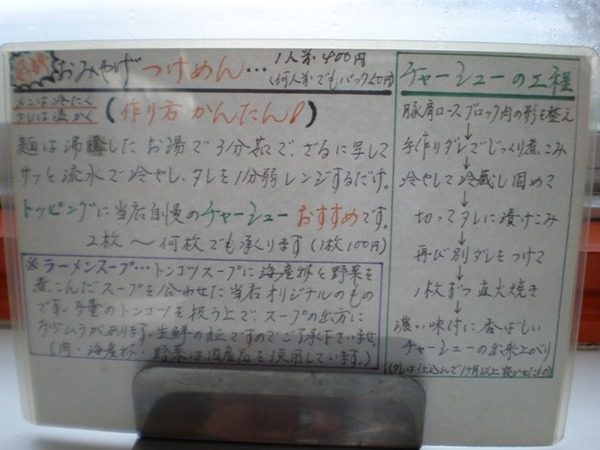 おみやげ つけめん… 1人前400円
(何人前でもパック50円)
メンは冷たく
タレは温かく
(作り方 かんたん♪)
麺は沸騰したお湯で3分茹で、ざるに写して
サッと流水で冷やし、タレを1分弱レンジするだけ。
トッピングに当店自慢のチャーシューおすすめです。
2枚〜何枚でも承ります(1枚100円)
※ラーメンスープ…トンコツスープに海産物と野菜を
煮こんだスープを合わせた当店オリジナルのもの
です。多量のトンコツを扱う上で、スープの出方に
ムラがあります。生鮮の証ですのでご了承下さいませ。
(肉・海産物・野菜は国産品を使用しています。)
チャーシューの工程
豚肩ロースブロック肉の形を整え
↓
手作りダレでじっくり煮こみ
↓
冷やして冷蔵し固めて
↓
切ってタレに漬けこみ
↓
再び別ダレをつけて
↓
1枚ずつ直火焼き
↓
濃い味付に香ばしい
チャーシューの出来上がり
(タレは仕込んで1ヶ月以上寝かせた)